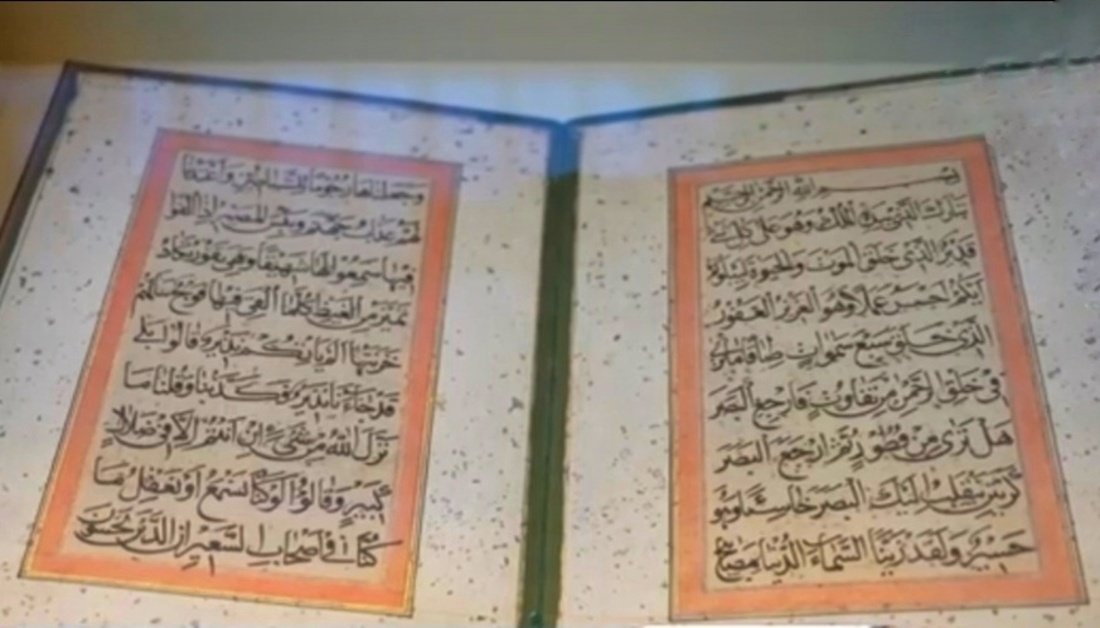 بسم الله الرحمن الرحيم
تبارك الذي بيده الملك وهو على كل شئ
قدير الذي خلق الموت والحيوة ليبلوكم
ايكم احسن عملا وهو العزيز الغفور
الذي خلق سبع سموات طباقا ما ترى
في خلق الرحمن من تفاوت فارجع البصر
هل ترى من فطور ثم ارجع البصر
كرتين ينقلب اليك البصر خاسئا وهو
حسير ولقد زينا السماء الدنيا بمصابيح
وجعلناها رجوما للشياطين واعتدنا
لهم عذاب جهنم وبئس المصير اذا القوا
فيها سمعوا لها شهيقا وهي تفور تكاد
تميز من الغيظ كلما القي فيها فوج سالهم
خزنتها الم ياتكم نذير قالوا بلى
قد جاءنا نذير فكذبنا وقلنا ما
نزل الله من شئ ان انتم الا في ضلال
كبير وقالوا لو كنا نسمع او نعقل ما
كنا في اصحاب السعير ان الذين يخشون